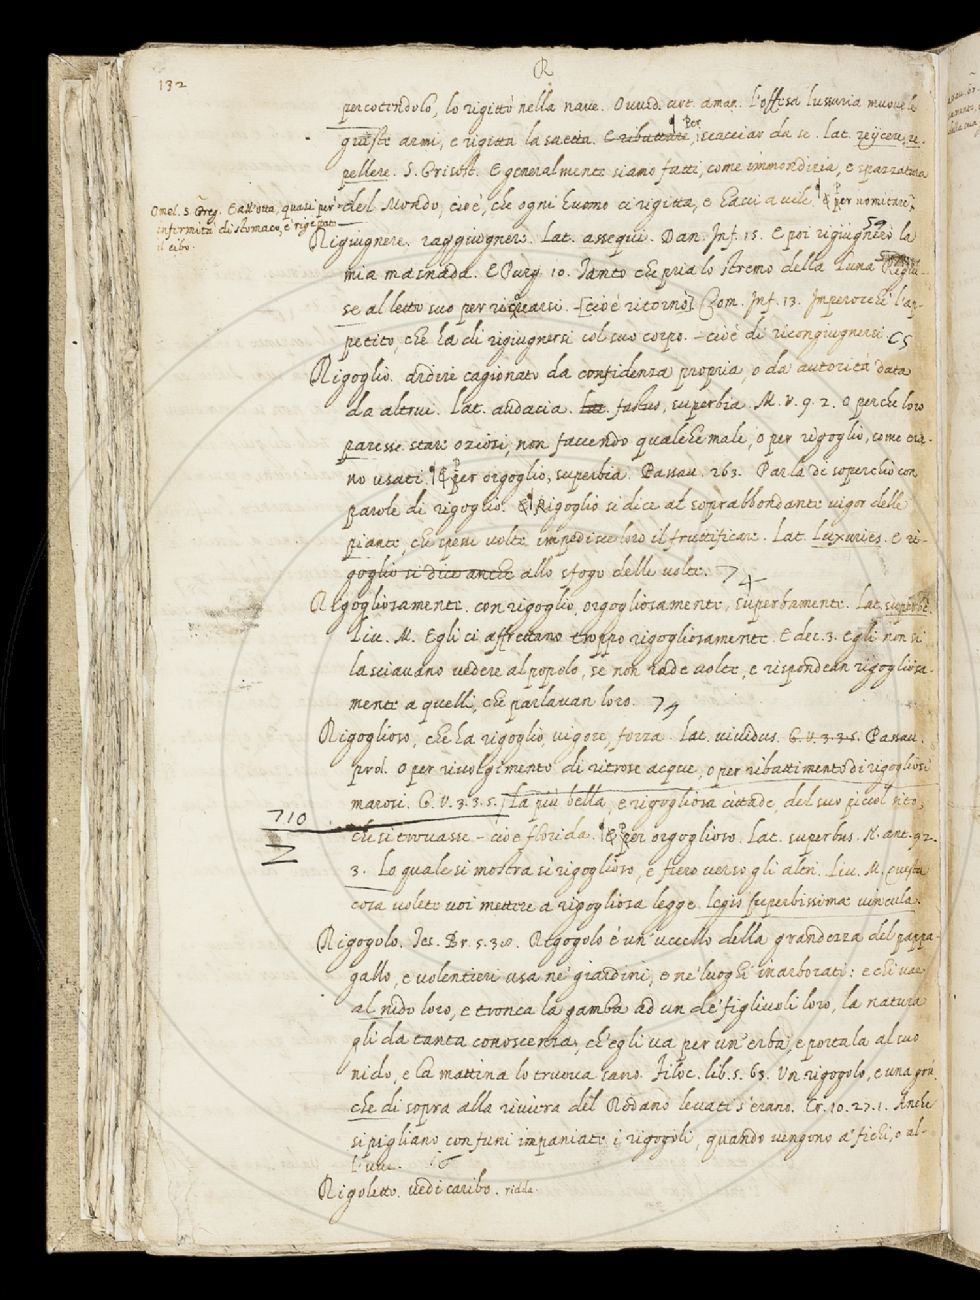 132
R
percotendolo, lo rigittò nella naue. Ouuid. art. aman. L'offesa lussuria muoue le
queste armi, e rigitta la saetta. E ributtare, Per, iscacciar da se. Lat. reijcere, re-
pellere. S. Grisost. E generalmente siamo fatti, come immondizia, e spazzatura
del Mondo, cioè, che ogni huomo ci rigitta, e hacci a uile. & per uomitare.
Omel. S. Greg. E all'otta, quasi per
infermità di stomaco, è rigittato
il cibo.
Rigiugnere. raggiugnere. Lat. assequi. Dan. Inf. 15. E poi rigiugnerò la 59
mia masnada. E Purg. 10. Tanto che pria lo stremo della Luna Rigiu-
se al letto suo per ricorcarsi. - [cioè ritornò] Com. Inf. 13. Imperocchè l'ap-
petito, che ha di rigiugnersi col suo corpo. - cioè di ricongiugnersi. C5
Rigoglio. ardire cagionato da confidenza propria, o da autorità data
da altrui. Lat. audacia. Lat. fastus, superbia. M. V. 9. 2. O perche loro
paresse stare oziosi, non faccendo qualche male, o per rigoglio, come era-
no usati. & per orgoglio, superbia. Passau. 263. Parla di soperchio con
parole di rigoglio. & Rigoglio si dice al soprabbondante uigor delle
piante, che spesse uolte impedisce loro il fruttificare. Lat. Luxuries. e ri-
goglio si dice anche allo sfogo delle uolte. 74
Rigogliosamente. con rigoglio, orgogliosamente, superbamente. Lat. superbè.
Liu. M. Egli ci affrettano troppo rigogliosamente. E dec. 3. Egli non si
lasciauano uedere al popolo, se non rade uolte, e rispondean rigogliosa-
mente a quelli, che parlauan loro. 74
Rigoglioso, che ha rigoglio, uigore, forza. Lat. uiuidus. G. V. 3. 3. 5. Passau.
prol. O per riuolgimento di ritrose acque, o per ribattimento di rigogliosi
marosi. G. V. 3. 3. 5. La più bella, e rigogliosa cittade, del suo piccol sito,
710
che si trouasse - cioè florida. & per orgoglioso. Lat. superbus. N. ant. 92.
3. Lo quale si mostra sì rigoglioso, e fiero uerso gli altri. Liu. M. Questa
cosa uolete uoi mettere a rigogliosa legge. legis superbissimae uincula.
Rigogolo. Tes. Br. 5. 30. Regogolo è un uccello della grandezza del pappa-
gallo, e uolentieri usa ne' giardini, e ne' luoghi inarborati: e chi uae
al nido loro, e tronca la gamba ad un de' figliuoli loro, la natura
gli da tanta conoscenza, ch'egli ua per un'erba, e portala al suo
nido, e la mattina lo truoua sano. Filoc. lib. 5. 63. Un rigogolo, e una gru,
che di sopra alla riuiera del Rodano leuati s'erano. Cr. 10. 27. 1. Anche
si pigliano con funi impaniate i rigogoli, quando uengono a' fichi, o al-
l'uue.
Rigoletto. uedi caribo. ridda.